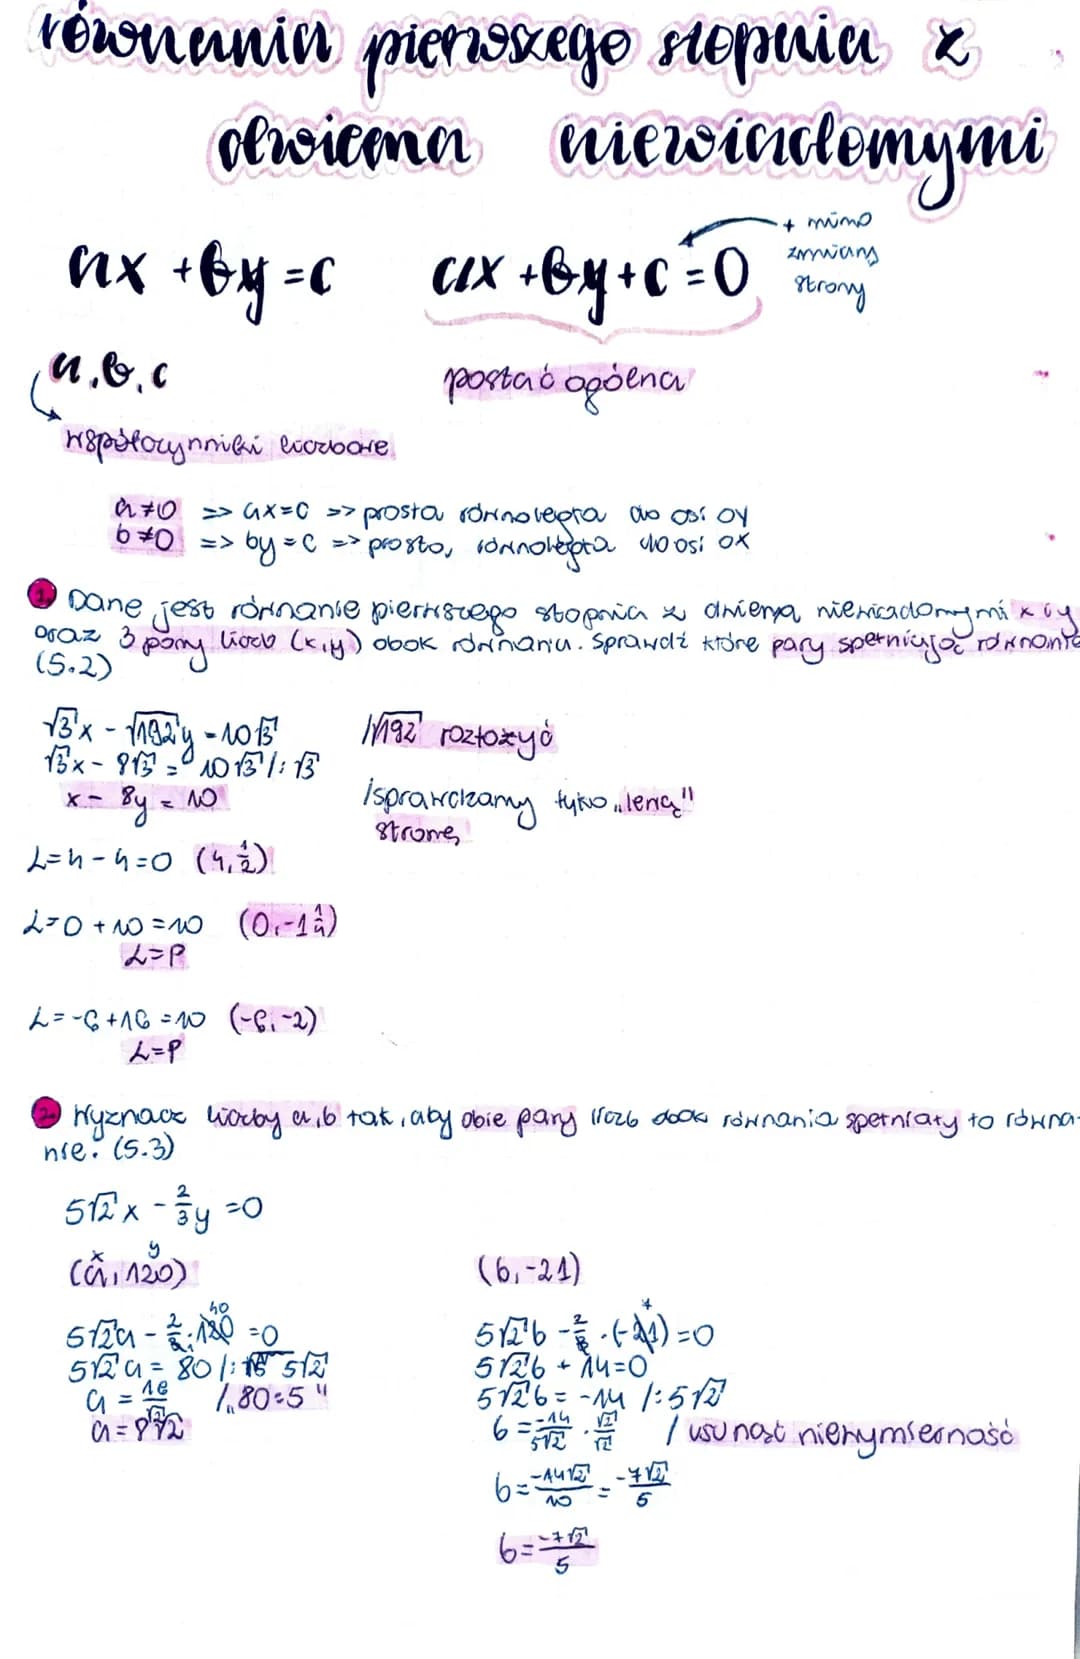 równania pierwszego stopnia z
dwiema niewiadomymi
ax + by = c    ax + by + c = 0    + mimo
zmiany
strony
a, b, c    postać ogólna
współczynniki liczbowe
a ≠ 0 => ax = c => prosta równoległa do osi oy
b ≠ 0 => by = c => prosta, równoległa do osi ox
1. Dane jest równanie pierwszego stopnia z dwiema niewiadomymi x i y
oraz 3 pary liczb (x,y) obok równania. Sprawdź które pary spełniają równanie
(5.2)
√3x - √192y = 10√3    /√192 rozłożyć
√3x - 8√3 = 10√3 /: √3
x - 8y = 10    /sprawdzamy tylko „lewą"
stronę
L = 4 - 4 = 0 (4, 1/2)
L = 0 + 10 = 10 (0, -1 1/4)
L = P
L = -6 + 16 = 10 (-6, -2)
L = P
2. Wyznacz liczby a, b tak, aby obie pary liczb obok równania spełniały to równa-
nie. (5.3)
5√2x - 2/3y = 0
x y
(a, 120)    (b, -21)
5√2a - 2/3 · 120 = 0    5√2b - 2/3 · (-21) = 0
40    7
5√2a = 80 /: 5√2    5√2b + 14 = 0
a = 16/√2    /„80:5"    5√2b = -14 /: 5√2
a = 8√2    b = -14/5√2 · √2/√2    / usunąć niewymierność
b = -14√2/10 = -7√2/5
b = -7√2/5